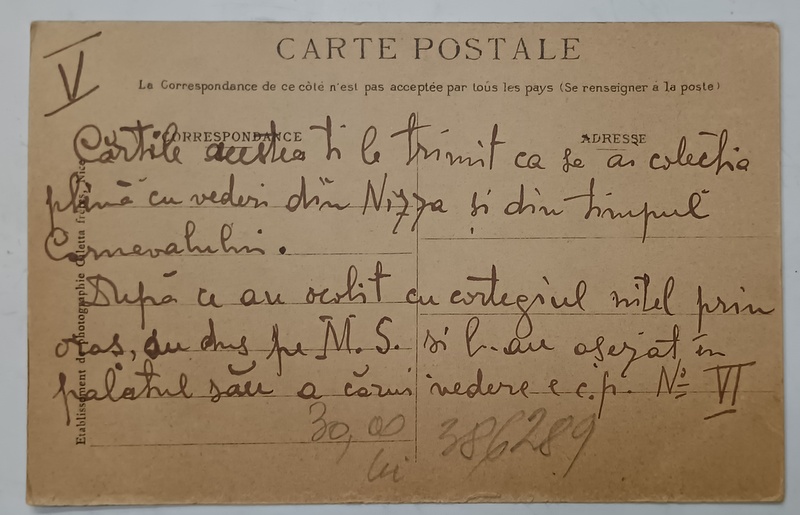 V
CARTE POSTALE
La Correspondance de ce côté n'est pas acceptée par tous les pays (Se renseigner à la poste)
CORRESPONDANCE
ADRESSE
Cărțile acestea ți le trimit ca să ai colecția
plină cu vederi din Nizza și din timpul
Carnevalului.
După ce au ocolit cu cortegiul nițel prin
oraș, au dus pe M. S. și l-au așezat în
palatul său a cărui vedere e c.p. No VI
Etablissement de photographie Giletta frères, Nice
30,00
lei
386289